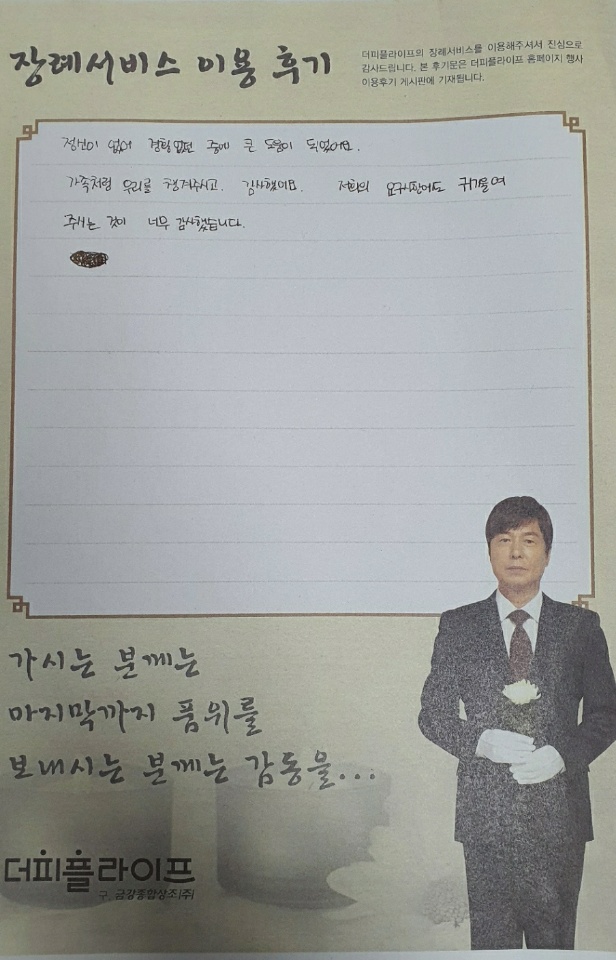 장례서비스 이용 후기
더피플라이프의 장례서비스를 이용해주셔서 진심으로
감사드립니다. 본 후기문은 더피플라이프 홈페이지 행사
이용후기 게시판에 기재됩니다.
정신이 없어 경황 없던 중에 큰 도움이 되었어요.
가족처럼 우리를 챙겨주시고. 감사했어요. 저희의 요구사항에도 귀기울여
주시는 것이 너무 감사했습니다.
가시는 분께는
마지막까지 품위를
보내시는 분께는 감동을...
더피플라이프
구. 금강종합상조(주)